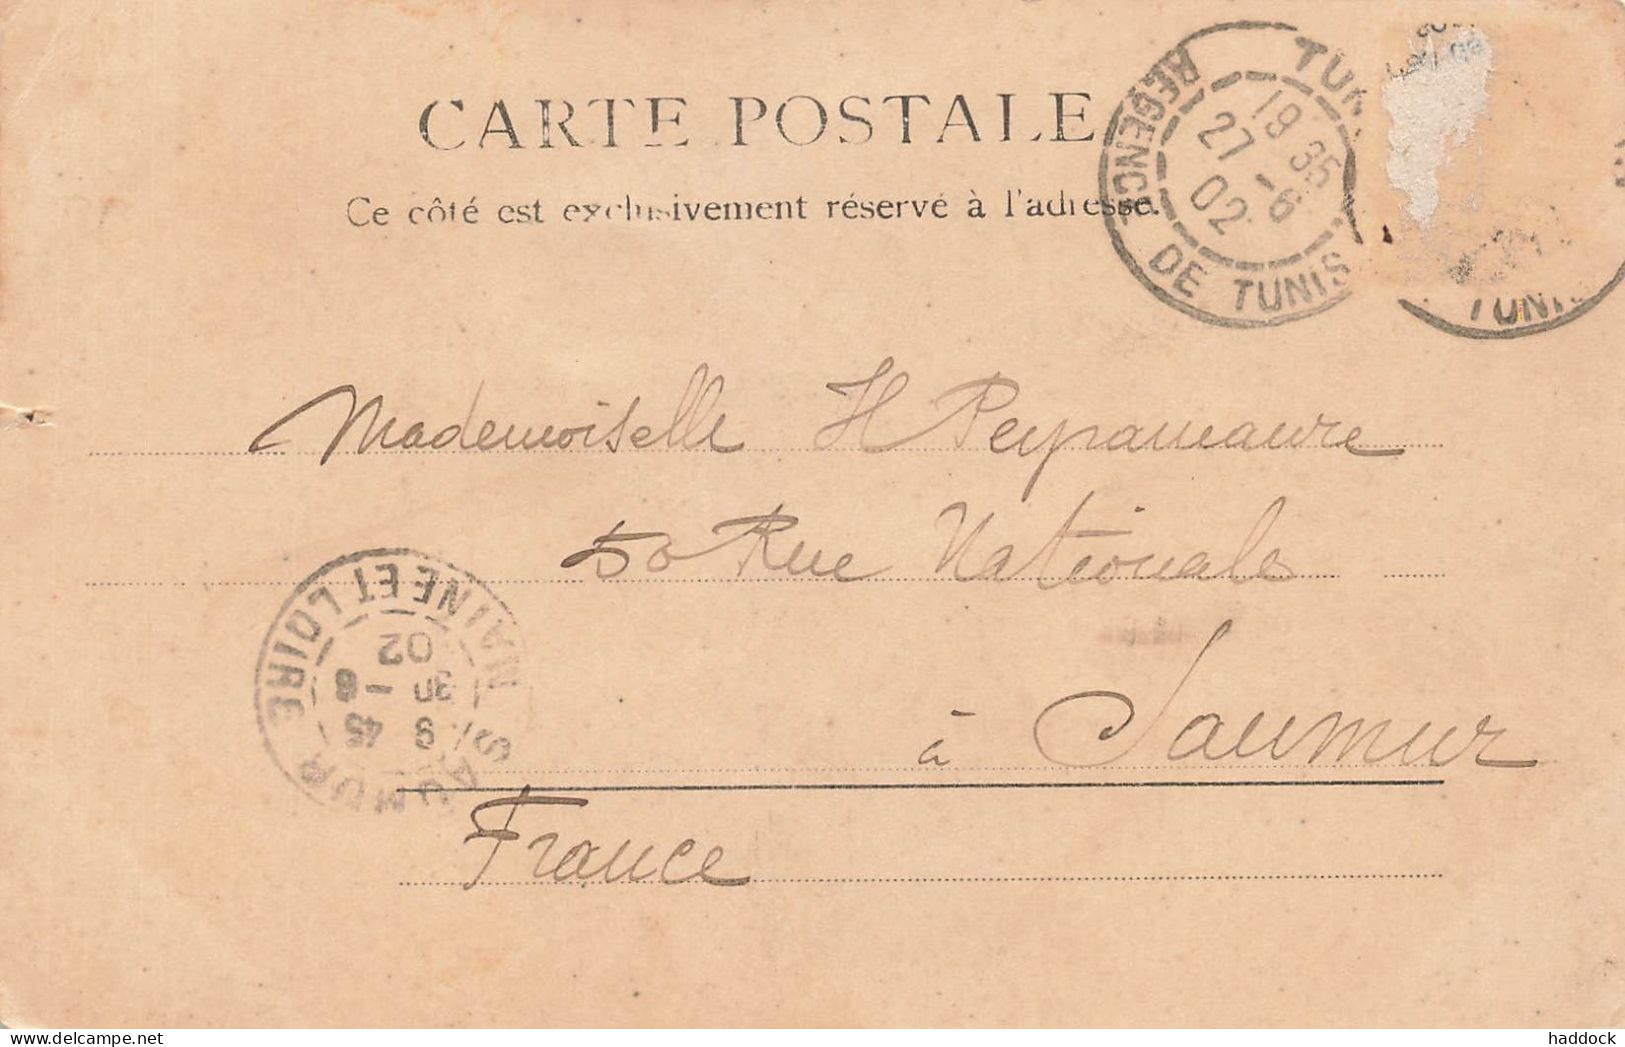 CARTE POSTALE
Ce côté est exclusivement réservé à l'adresse.
RÉGENCE DE TUNIS
19 35
27 -6
02
TUNIS
Mademoiselle H Peypamaure
50 Rue Nationale
à Saumur
France
SAUMUR
MAINE ET LOIRE
9 45
30 -6
02
www.delcampe.net
haddock